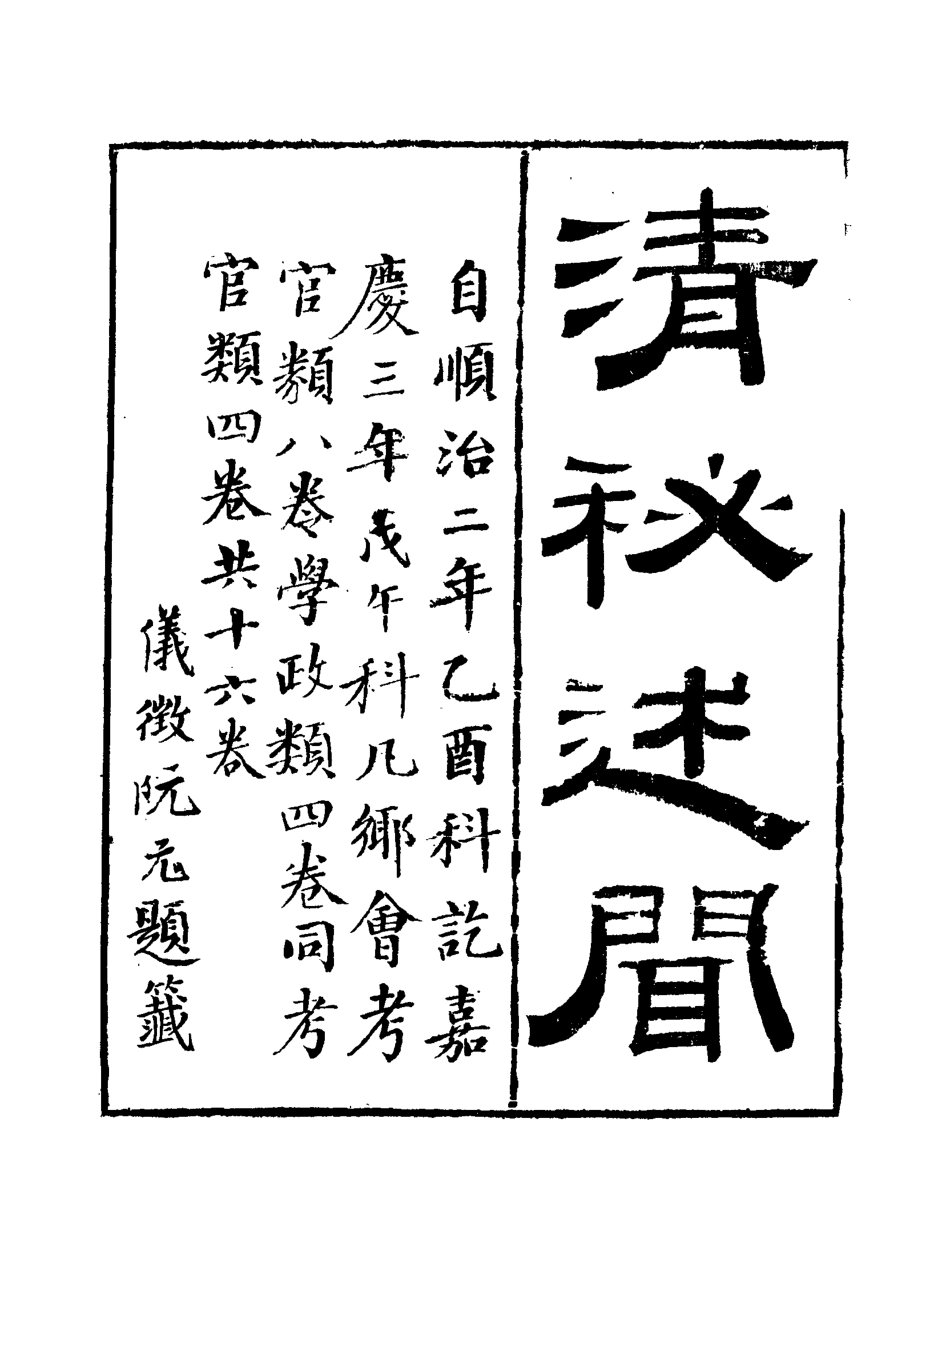 清秘述聞
自順治二年乙酉科訖嘉
慶三年戊午科凡鄉會考
官類八卷學政類四卷同考
官類四卷共十六卷
儀徵阮元題籤